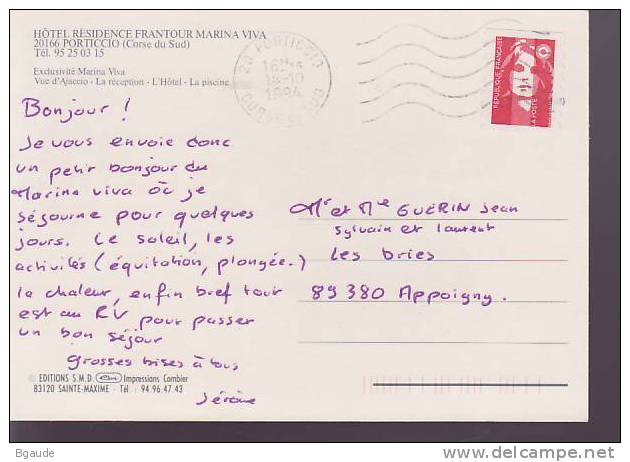 HÔTEL RÉSIDENCE FRANTOUR MARINA VIVA
20166 PORTICCIO (Corse du Sud)
Tél. 95 25 03 15
Exclusivité Marina Viva
Vue d'Ajaccio - La réception - L'Hôtel - La piscine.
20 PORTICCIO
16H
18-10
1994
CORSE DU SUD
REPUBLIQUE FRANÇAISE
LA POSTE
Bonjour !
Je vous envoie donc
un petit bonjour du
Marina viva où je
séjourne pour quelques
jours. Le soleil, les
activités (équitation, plongée.)
la chaleur, enfin bref tout
est au RV pour passer
un bon séjour
grosses bises à tous
Jérôme
Mr et Me GUERIN Jean
Sylvain et Laurent
Les bries
89380 Appoigny.
© EDITIONS S.M.D. Impressions Combier
83120 SAINTE-MAXIME - Tél. 94.96.47.43
Bgaude
www.delcampe.net